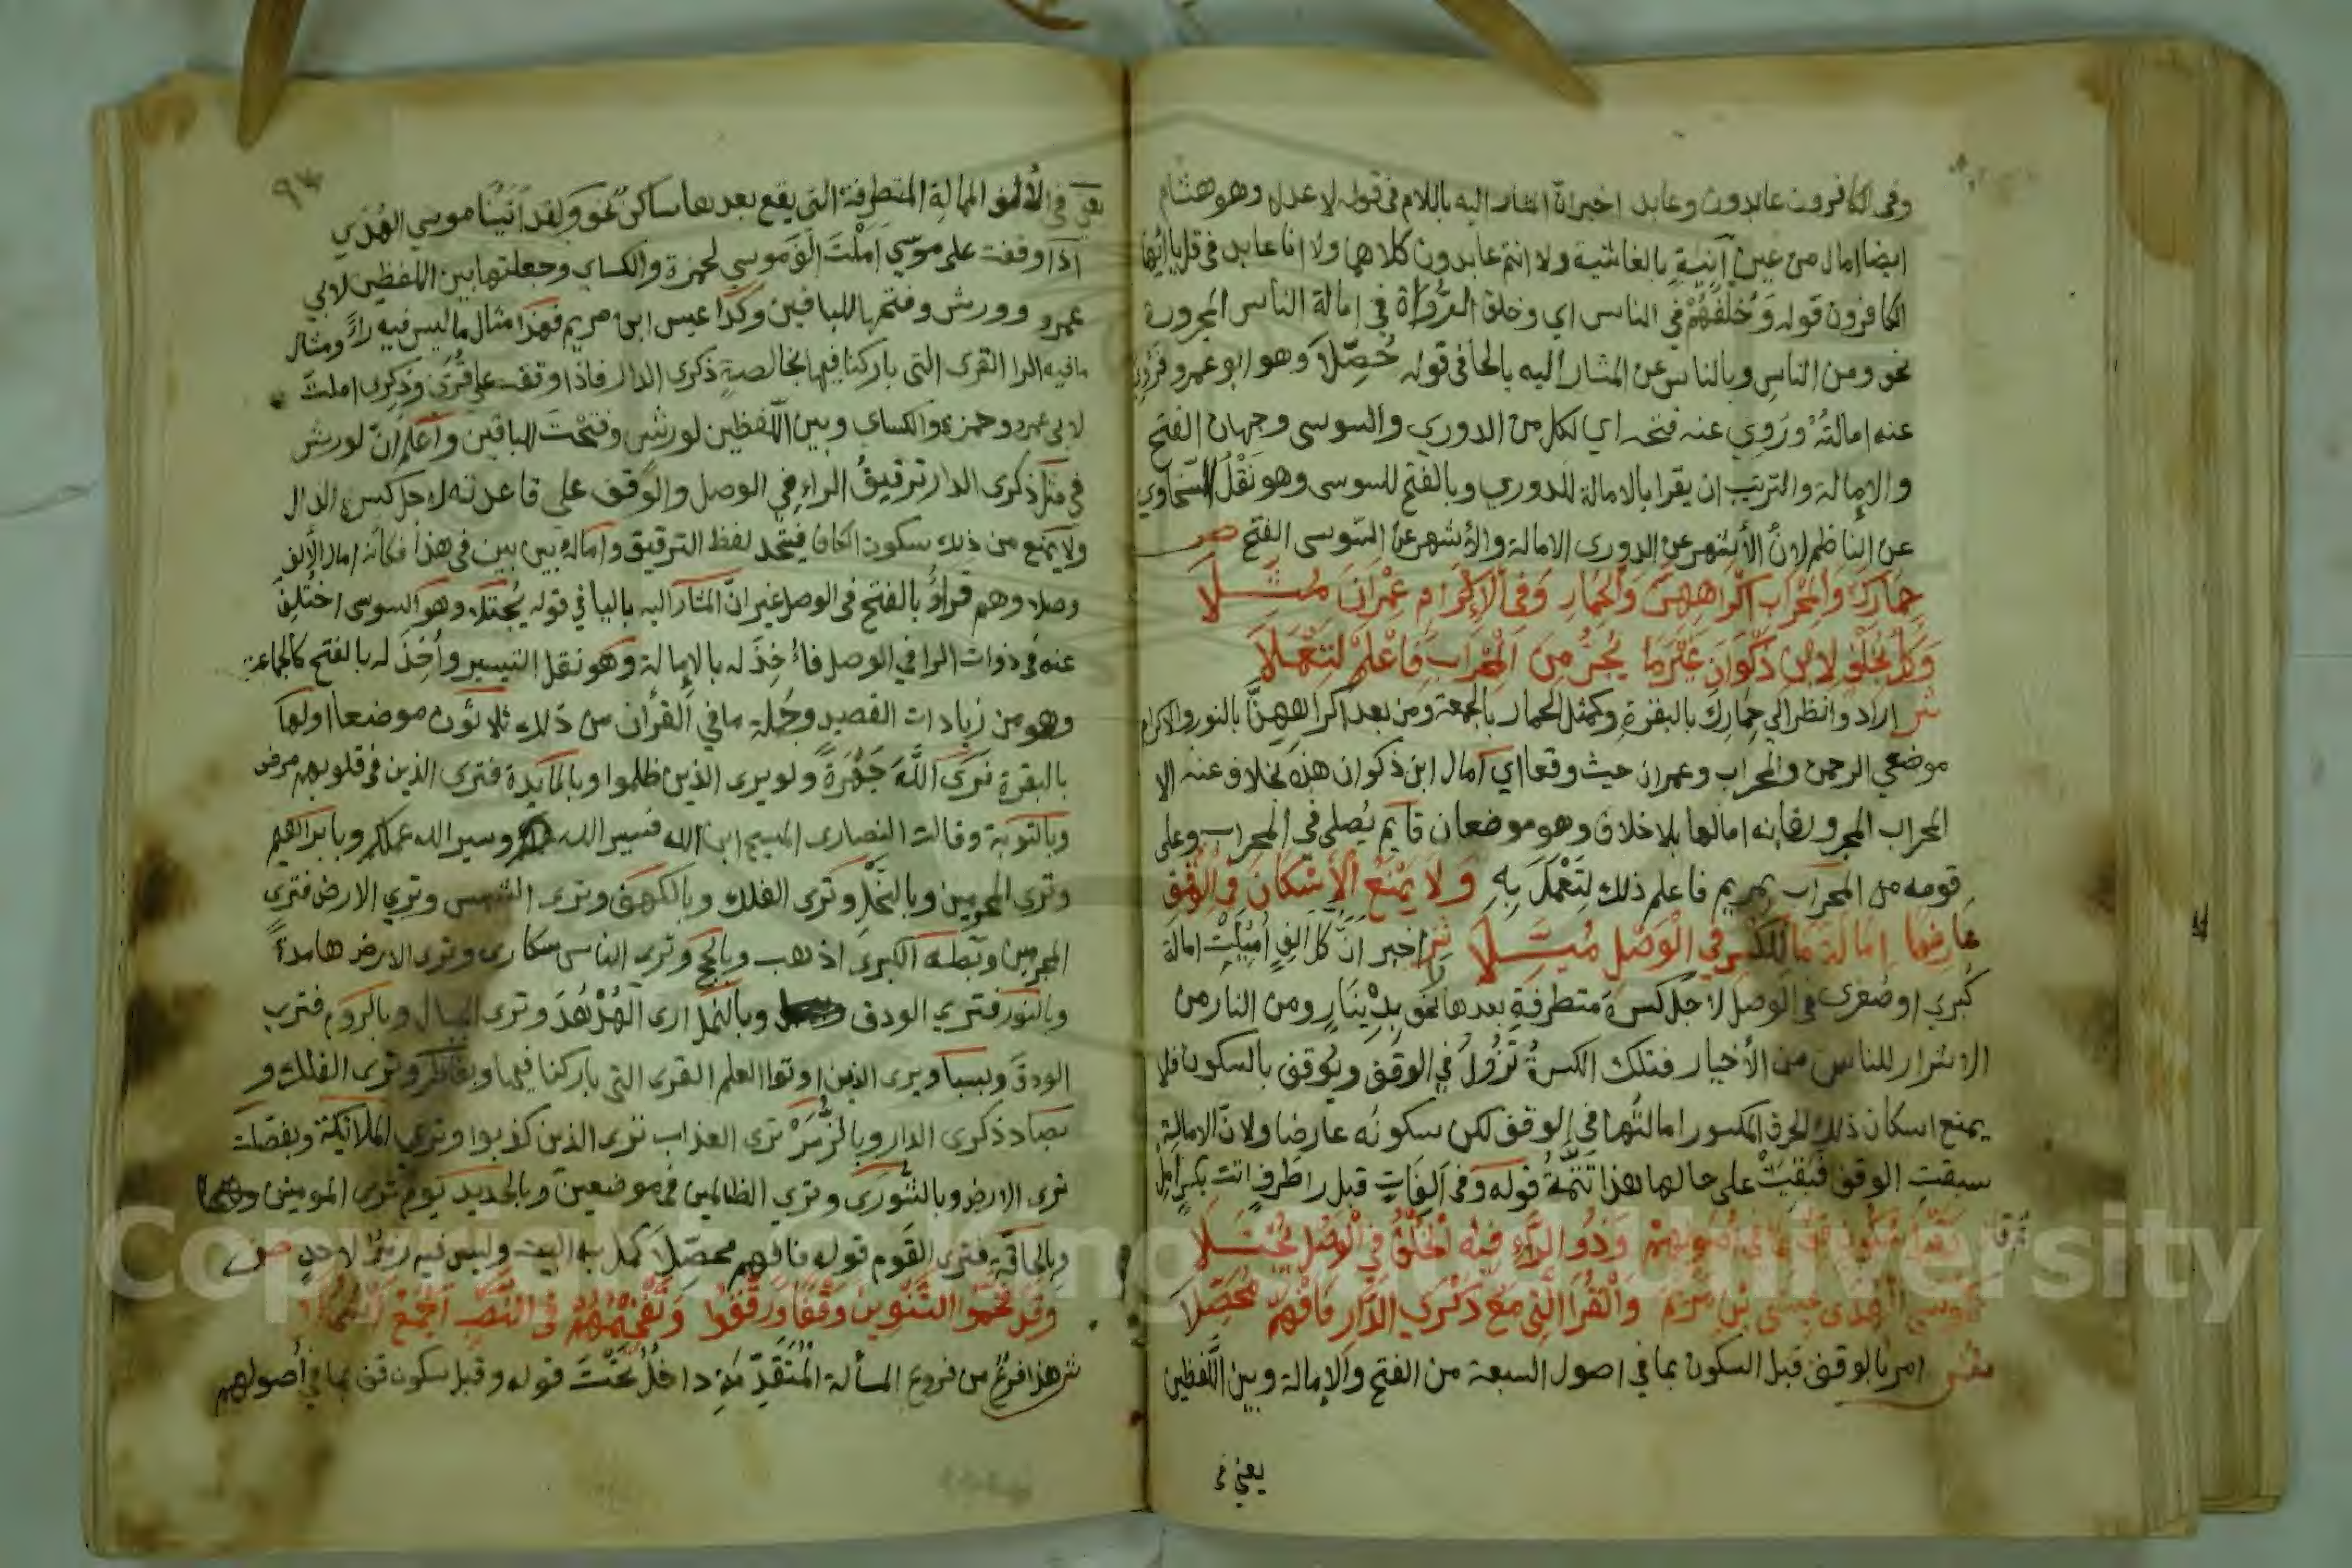 وفى الكافرون عابدون وعابد اخبران المشار اليه باللام فى قوله لاعدله وهو هشام
ايضا امال من عين آنية بالغاشية ولا انتم عابدون كلاهما ولا انا عابد فى قل يا ايها
الكافرون قوله وَخُلْفُهُمْ في الناس اي وخلف الرُّوَاة في امالة الناس المجرورة
نحو ومن الناس وبالناس عن المشار اليه بالحا فى قوله حُصِّلاَ وهو ابو عمرو فروي
عنه امالتُهُ ورَوِي عنه فتحه اي لكل من الدوري والسوسي وجهان الفتح
والإمالة والترتيب ان يقرا بالامالة للدوري وبالفتح للسوسى وهو نَقْلُ السّخاوي
عن الناظم لانّ الأشهر عن الدورى الامالة والأشهر عن السّوسى الفتح ص
حِمَارِكَ وَالمِحْرَابِ اكْرَاهِهِنَّ وَالْحِمَارِ وَفى الْإِكْرَامِ عِمْرَانَ مُثِّـــلَا
وَكلٌّ بخُلْفٍ لِابْنِ ذَكْوَانَ غَيْرَمَا يُجَرُّ مِنَ الْمِحْرَابِ فَاعْلَمْ لِتَعْمَلَا
ش اراد وانظر الي حِمَارِكَ بالبقرة وكمثل الحمار بالجمعة ومن بعد اكراههنّ بالنور والاكرام
موضعي الرحمن والمحراب وعمران حيث وقعا اي امال ابن ذكوان هذه بخلاف عنه الا
المحراب المجرور فانه امالها بلا خلاف وهو موضعان قايم يُصلى في المحراب وعلى
قومه من المحراب بمريم فاعلم ذلك لِتَعْمَلَ بِهِ وَلا يَمْنَعُ الْاِسْكَانُ فى الْوَقْفِ
عَارِضًا اِمَالَةَ مَا لِلْكَسْرِ فِي الْوَصْلِ مُيِّـــلَا ش اخبر انّ كل الِفٍ اُمِيلَتْ امالة
كُبري او صُغرى في الوصل لاجل كسرة متطرفةٍ بعدها نحو بدِيْنَارٍ ومن النار من
الاشرار للناس من الأخيار فتلك الكسرةُ تَزُولُ في الوقف ويُوقف بالسكون فلا
يمنع اسكان ذلك الحرف المكسور امالتُها في الوقف لكن سكونُه عارضا ولانّ الامالة
سبقتِ الوقف فَبَقِيَتْ على حالها هذا تَتِمَّةُ قوله وَفى اَلِفَاتٍ قبل را طَرَفٍ اتت بكسرٍ امل
وَقَبْلَ سُكُونٍ قِفْ بِمَا في اُصُولِهِمْ وَذُو الرَّاءِ فِيْهِ الْخُلْفُ فِي الْوَصْلِ يُجْتَـــلَا
كَمُوسَي الْهُدَى عِيْسَى بْنِ مَرْيَمَ وَالْقُرَا الَّتِى مَعْ ذِكْرَي الدَّارِ فَافْهَمْ مُحَصِّلَا
ش امر بالوقف قبل السكون بما في اصول السبعة من الفتح والإمالة وبين اللّفظين
يعني فى
٩٣
يعني فى الألف الممالة المتطرفة التي يقع بعدها ساكن نحو ولقد اتينا موسي الهُدَي
اذا وقفت على موسَي اَمَلْتَ الف موسي لحمزة والكساي وجعلتها بين اللفظين لابي
عمرو وورش وفتحها للباقين وكذا عيسى ابن مريم فهذا مثال ما ليس فيه راءٌ ومثال
مافيه الرا القرى التى باركنا فيها بخالصةٍ ذكرى الدار فاذا وقفت على قُرَى وذِكرى املتَ
لابي عمرو وحمزة والكساي وبين اللّفظين لورش وفتحتَ للباقين واعلم انّ لورش
في مثل ذكرى الدار ترقيقُ الراءِ في الوصل والوقف على قاعدته لاجل كسرة الدال
ولا يمنع من ذلك سكون الكاف فيتّحد لفظ الترقيق وامالة بين بين فى هذا فكأنه امال الألف
وصلا وهم قراؤ بالفتح فى الوصل غير انّ المشار اليه باليا في قوله يُجتلا وهو السوسى اختُلِفَ
عنه فى ذوات الرا في الوصل فاُخِذَ له بالإمالة وهو نقل التيسير واُخِذَ له بالفتح كالجماعة
وهو من زيادات القصيد وجُملة ما في القرأن من ذلك ثلاثون موضعا اولها
بالبقرة نرَى اللَّهَ جَهْرَةً ولو يرى الذين ظلموا وبالمايدة فترى الذين فى قلوبهم مرض
وبالتوبة وقالت النصارى المسيح ابن الله فسيرا الله وسيرا الله عملكم وبابراهيم
وترى المجرمين وبالنّحل وتَرى الفلك وبالكهف وترى الشمس وتري الارض فترى
المجرمين وبطه الكبرى اذهب وبالحج وترى الناس سكارى وترى الارض هامدةً
وبالنّور فترى الودق وبالنّمل ارى الهُدْهُدَ وترى الجبال وبالروم فترى
الودق وبسبا ويرى الذين اوتوا العلم القرى التي باركنا فيها وبفاطر وترى الفلك و
بصاد ذكرى الدار وبالزُّمَرْ ترى العذاب ترى الذين كذبوا وتري الملائكة وبفصّلت
ترى الارض وبالشورى وتري الظالمين فى موضعين وبالحديد يوم ترى المومنين
وبالحاقّة فترى القوم قوله فافهم محصّلا كمّل به البيت وليس فيه رمزٌ لاحدٍ ص
وَقَدْ فَخَّمُوا التَّنْوِينَ وَقْفًا وَرَقَّقُوا وَتَفْخِيمُهُمْ فى النَّصْبِ اَجْمَعُ اَشْمُلَا
ش هذا فرعٌ من فروع المسألة الْمُتَقَدِّمَةِ داخلٌ تحْتَ قوله وقبل سكون قف بما في اُصولهم